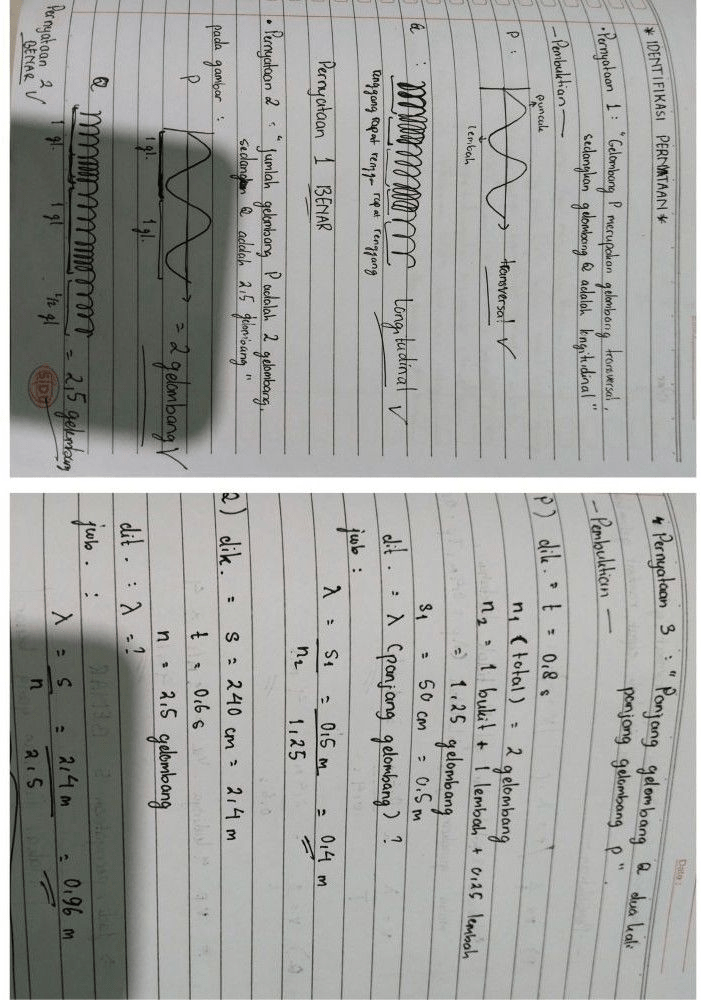 * IDENTIFIKASI PERNYATAAN *
• Pernyataan 1 : "Gelombang P merupakan gelombang transversal,
sedangkan gelombang Q adalah longitudinal"
- Pembuktian -
puncak
P :
transversal √
lembah
Q : Longitudinal √
renggang rapat rengga rapat renggang
Pernyataan 1 BENAR
• Pernyataan 2 : "Jumlah gelombang P adalah 2 gelombang,
sedangkan Q adalah 2,5 gelombang"
pada gambar :
P = 2 gelombang √
1 gl. 1 gl.
Q = 2,5 gelombang
1 gl. 1 gl 1/2 gl
Pernyataan 2
BENAR √
Date:
* Pernyataan 3 : "Panjang gelombang Q dua kali
panjang gelombang P"
- Pembuktian -
P) dik. = t = 0,8 s
n1 (total) = 2 gelombang
n2 = 1 bukit + 1 lembah + 0,25 lembah
=) 1,25 gelombang
S1 = 50 cm = 0,5 m
dit. = λ (panjang gelombang) ?
jwb :
λ = S1 = 0,5 m = 0,4 m
n2 1,25
Q) dik. = S = 240 cm = 2,4 m
t = 0,6 s
n = 2,5 gelombang
dit. : λ = ?
jwb. :
λ = S = 2,4 m = 0,96 m
n 2,5